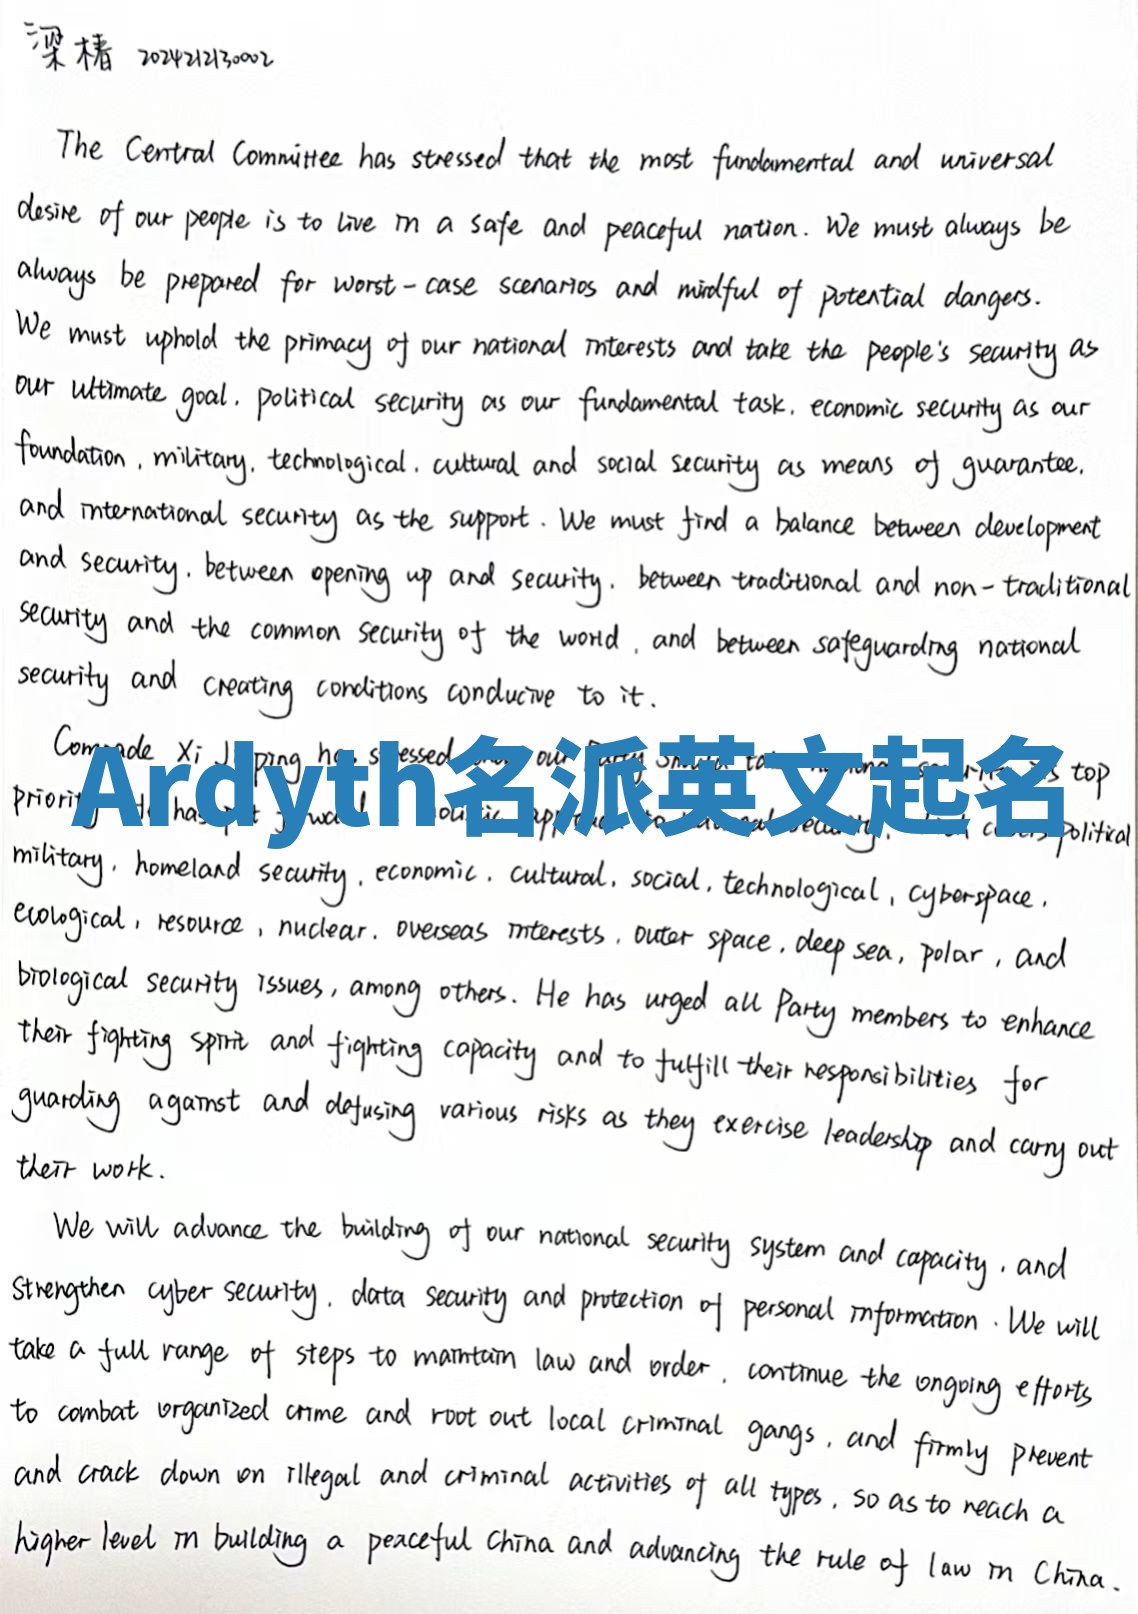 梁椿 2024212130002
The Central Committee has stressed that the most fundamental and universal
desire of our people is to live in a safe and peaceful nation. We must always be
always be prepared for worst-case scenarios and mindful of potential dangers.
We must uphold the primacy of our national interests and take the people's security as
our ultimate goal, political security as our fundamental task, economic security as our
foundation, military, technological, cultural and social security as means of guarantee,
and international security as the support. We must find a balance between development
and security, between opening up and security, between traditional and non-traditional
security and the common security of the world, and between safeguarding national
security and creating conditions conducive to it.
Comrade Xi Jinping has stressed our Party top
Ardyth名派英文起名
priority to political
military, homeland security, economic, cultural, social, technological, cyberspace,
ecological, resource, nuclear, overseas interests, outer space, deep sea, polar, and
biological security issues, among others. He has urged all Party members to enhance
their fighting spirit and fighting capacity and to fulfill their responsibilities for
guarding against and defusing various risks as they exercise leadership and carry out
their work.
We will advance the building of our national security system and capacity, and
strengthen cyber security, data security and protection of personal information. We will
take a full range of steps to maintain law and order, continue the ongoing efforts
to combat organized crime and root out local criminal gangs, and firmly prevent
and crack down on illegal and criminal activities of all types, so as to reach a
higher level in building a peaceful China and advancing the rule of law in China.